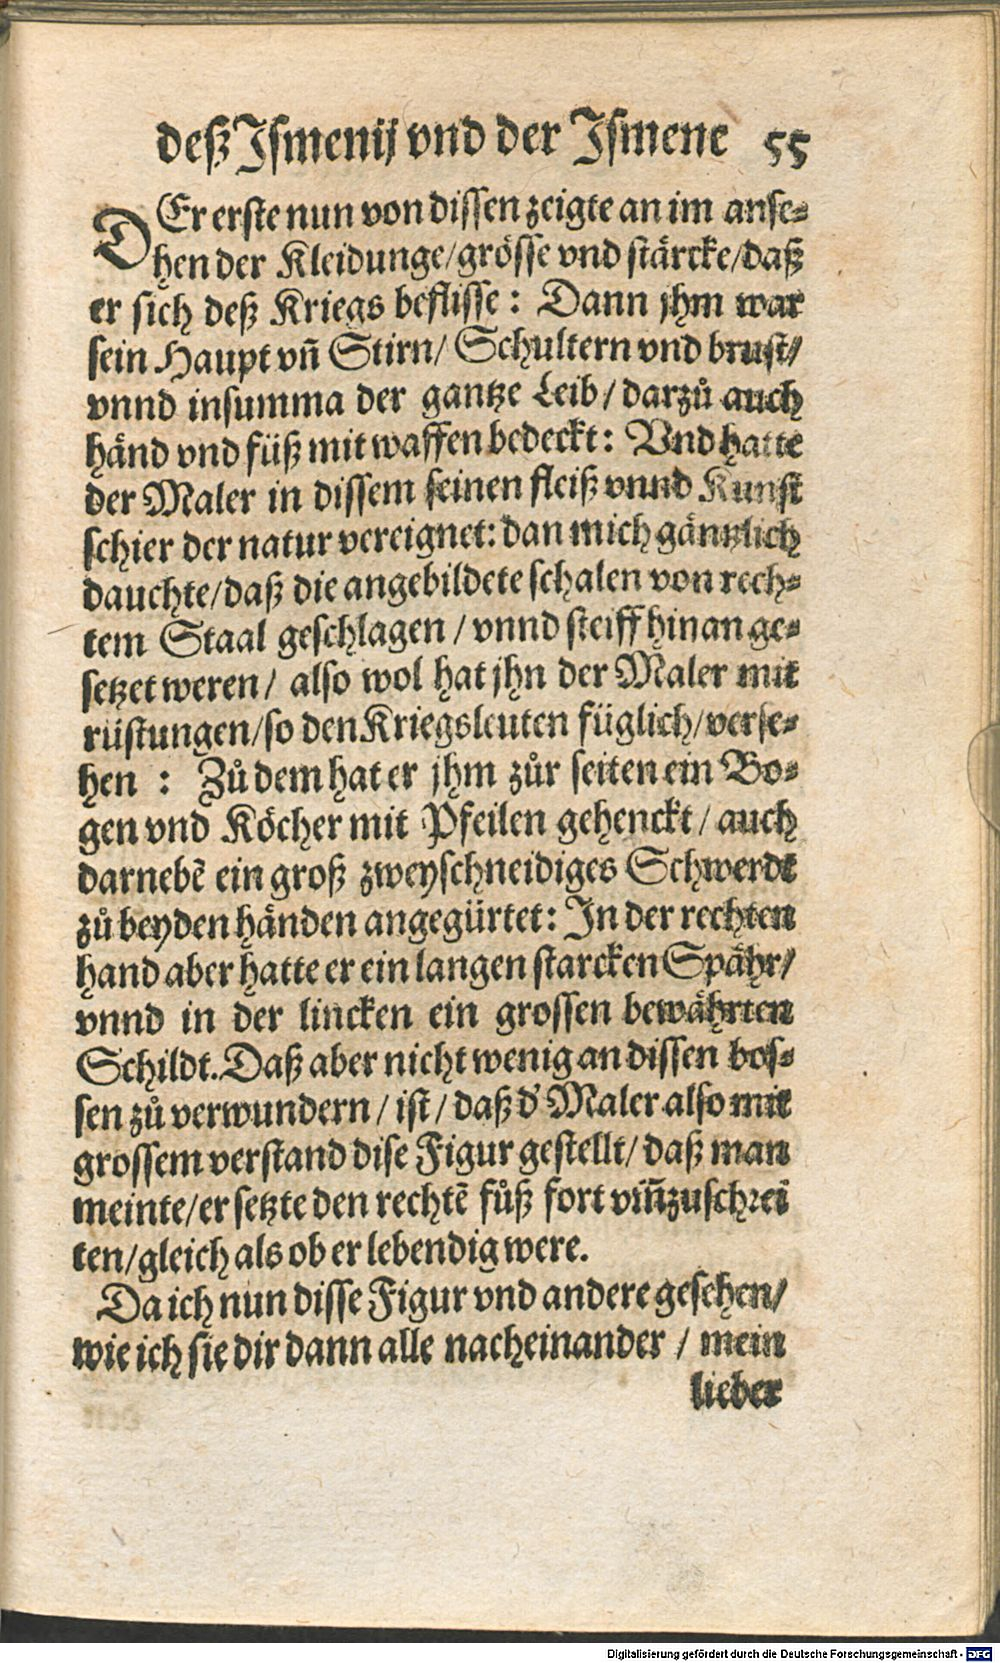 deß Ismenij vnd der Ismene 55
DEr erste nun von dissen zeigte an im anse⸗
hen der Kleidunge/grösse vnd stärcke/daß
er sich deß Kriegs beflisse: Dann jhm war
sein Haupt vñ Stirn/ Schultern vnd brust/
vnnd insumma der gantze Leib/ darzů auch
händ vnd füß mit waffen bedeckt: Vnd hatte
der Maler in dissem seinen fleiß vnnd Kunst
schier der natur vereignet: dan mich gäntzlich
dauchte/daß die angebildete schalen von rech⸗
tem Staal geschlagen / vnnd steiff hinan ge⸗
setzet weren/ also wol hat jhn der Maler mit
rüstungen/so den Kriegsleuten füglich/verse⸗
hen : Zů dem hat er jhm zůr seiten ein Bo⸗
gen vnd Köcher mit Pfeilen gehenckt/ auch
darnebē ein groß zweyschneidiges Schwerdt
zů beyden händen angegürtet: In der rechten
hand aber hatte er ein langen starcken Spähr/
vnnd in der lincken ein grossen bewährten
Schildt. Daß aber nicht wenig an dissen bos⸗
sen zů verwundern/ ist/ daß d' Maler also mit
grossem verstand dise Figur gestellt/ daß man
meinte/er setzte den rechtē fůß fort vm̃zuschrei
ten/gleich als ob er lebendig were.
Da ich nun disse Figur vnd andere gesehen/
wie ich sie dir dann alle nacheinander / mein
lieber
Digitalisierung gefördert durch die Deutsche Forschungsgemeinschaft - DFG